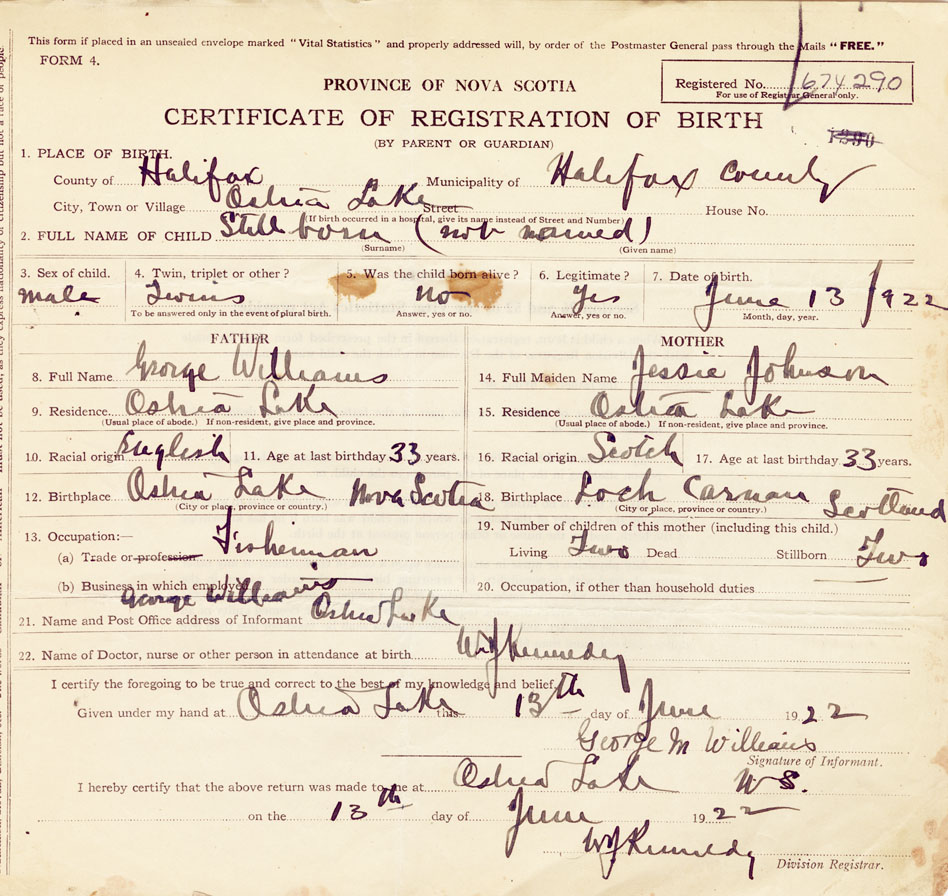 This form if placed in an unsealed envelope marked "Vital Statistics" and properly addressed will, by order of the Postmaster General pass through the Mails "FREE."
FORM 4.
Registered No. 674290
For use of Registrar General only.
PROVINCE OF NOVA SCOTIA
CERTIFICATE OF REGISTRATION OF BIRTH
(BY PARENT OR GUARDIAN)
1. PLACE OF BIRTH.
County of Halifax Municipality of Halifax County
City, Town or Village Oshia Lake Street House No.
(If birth occurred in a hospital, give its name instead of Street and Number)
2. FULL NAME OF CHILD Still born (not named)
(Surname) (Given name)
3. Sex of child. 4. Twin, triplet or other? 5. Was the child born alive? 6. Legitimate? 7. Date of birth.
male Twins no Yes June 13 1922
To be answered only in the event of plural birth. Answer, yes or no. Answer, yes or no. Month, day, year.
FATHER MOTHER
8. Full Name George Williams 14. Full Maiden Name Jessie Johnson
9. Residence Oshia Lake 15. Residence Oshia Lake
(Usual place of abode.) If non-resident, give place and province. (Usual place of abode.) If non-resident, give place and province.
10. Racial origin English 11. Age at last birthday 33 years. 16. Racial origin Scotch 17. Age at last birthday 33 years.
12. Birthplace Oshia Lake Nova Scotia 18. Birthplace Loch Carnan Scotland
(City or place, province or country.) (City or place, province or country.)
13. Occupation:— 19. Number of children of this mother (including this child.)
(a) Trade or profession Fisherman Living Two Dead Stillborn Two
(b) Business in which employed 20. Occupation, if other than household duties
George Williams
21. Name and Post Office address of Informant Oshia Lake
22. Name of Doctor, nurse or other person in attendance at birth WJ Kennedy
I certify the foregoing to be true and correct to the best of my knowledge and belief.
Given under my hand at Oshia Lake this 13th day of June 1922
George M Williams
Signature of Informant.
I hereby certify that the above return was made to me at Oshia Lake N S.
on the 13th day of June 1922
WJ Kennedy
Division Registrar.